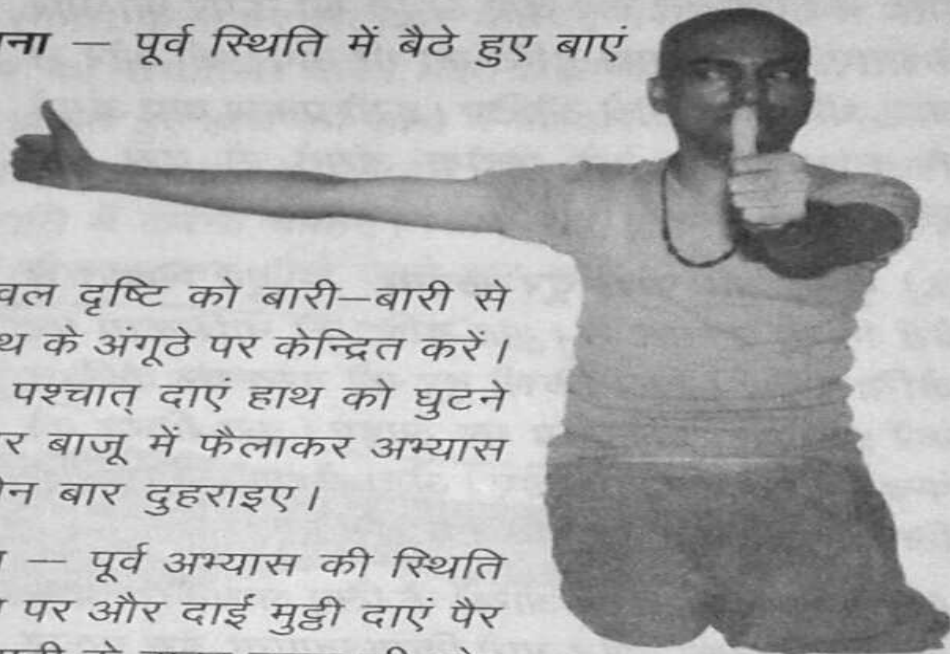 ना — पूर्व स्थिति में बैठे हुए बाएं
वल दृष्टि को बारी–बारी से
थ के अंगूठे पर केन्द्रित करें।
पश्चात् दाएं हाथ को घुटने
र बाजू में फैलाकर अभ्यास
न बार दुहराइए।
— पूर्व अभ्यास की स्थिति
पर और दाईं मुट्ठी दाएं पैर